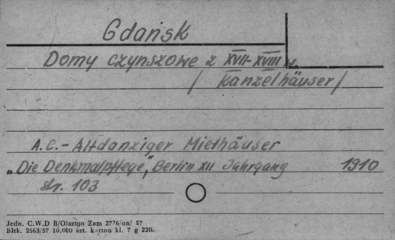 Gdańsk
Domy czynszowe z XVII-XVIII w.
/ Kanzelhäuser /
A.C. - Altdanziger Miethäuser
"Die Denkmalpflege", Berlin XII Jahrgang 1910
str. 103
Jedn. C.W.D B/Olsztyn Zam 2776/on/ 57
Bltk. 2563/57 10.000 szt. karton kl. 7 g 220.